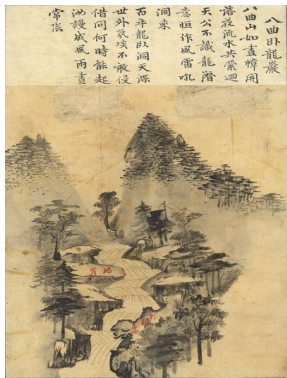 八曲卧龍巖
八曲山如畫幛開
落花流水共縈洄
天公不識龍潛
意恒作風雷吼
洞来
百年龍卧洞天深
世外氛埃不敢侵
借问何時能起
成風雨盡
常陰